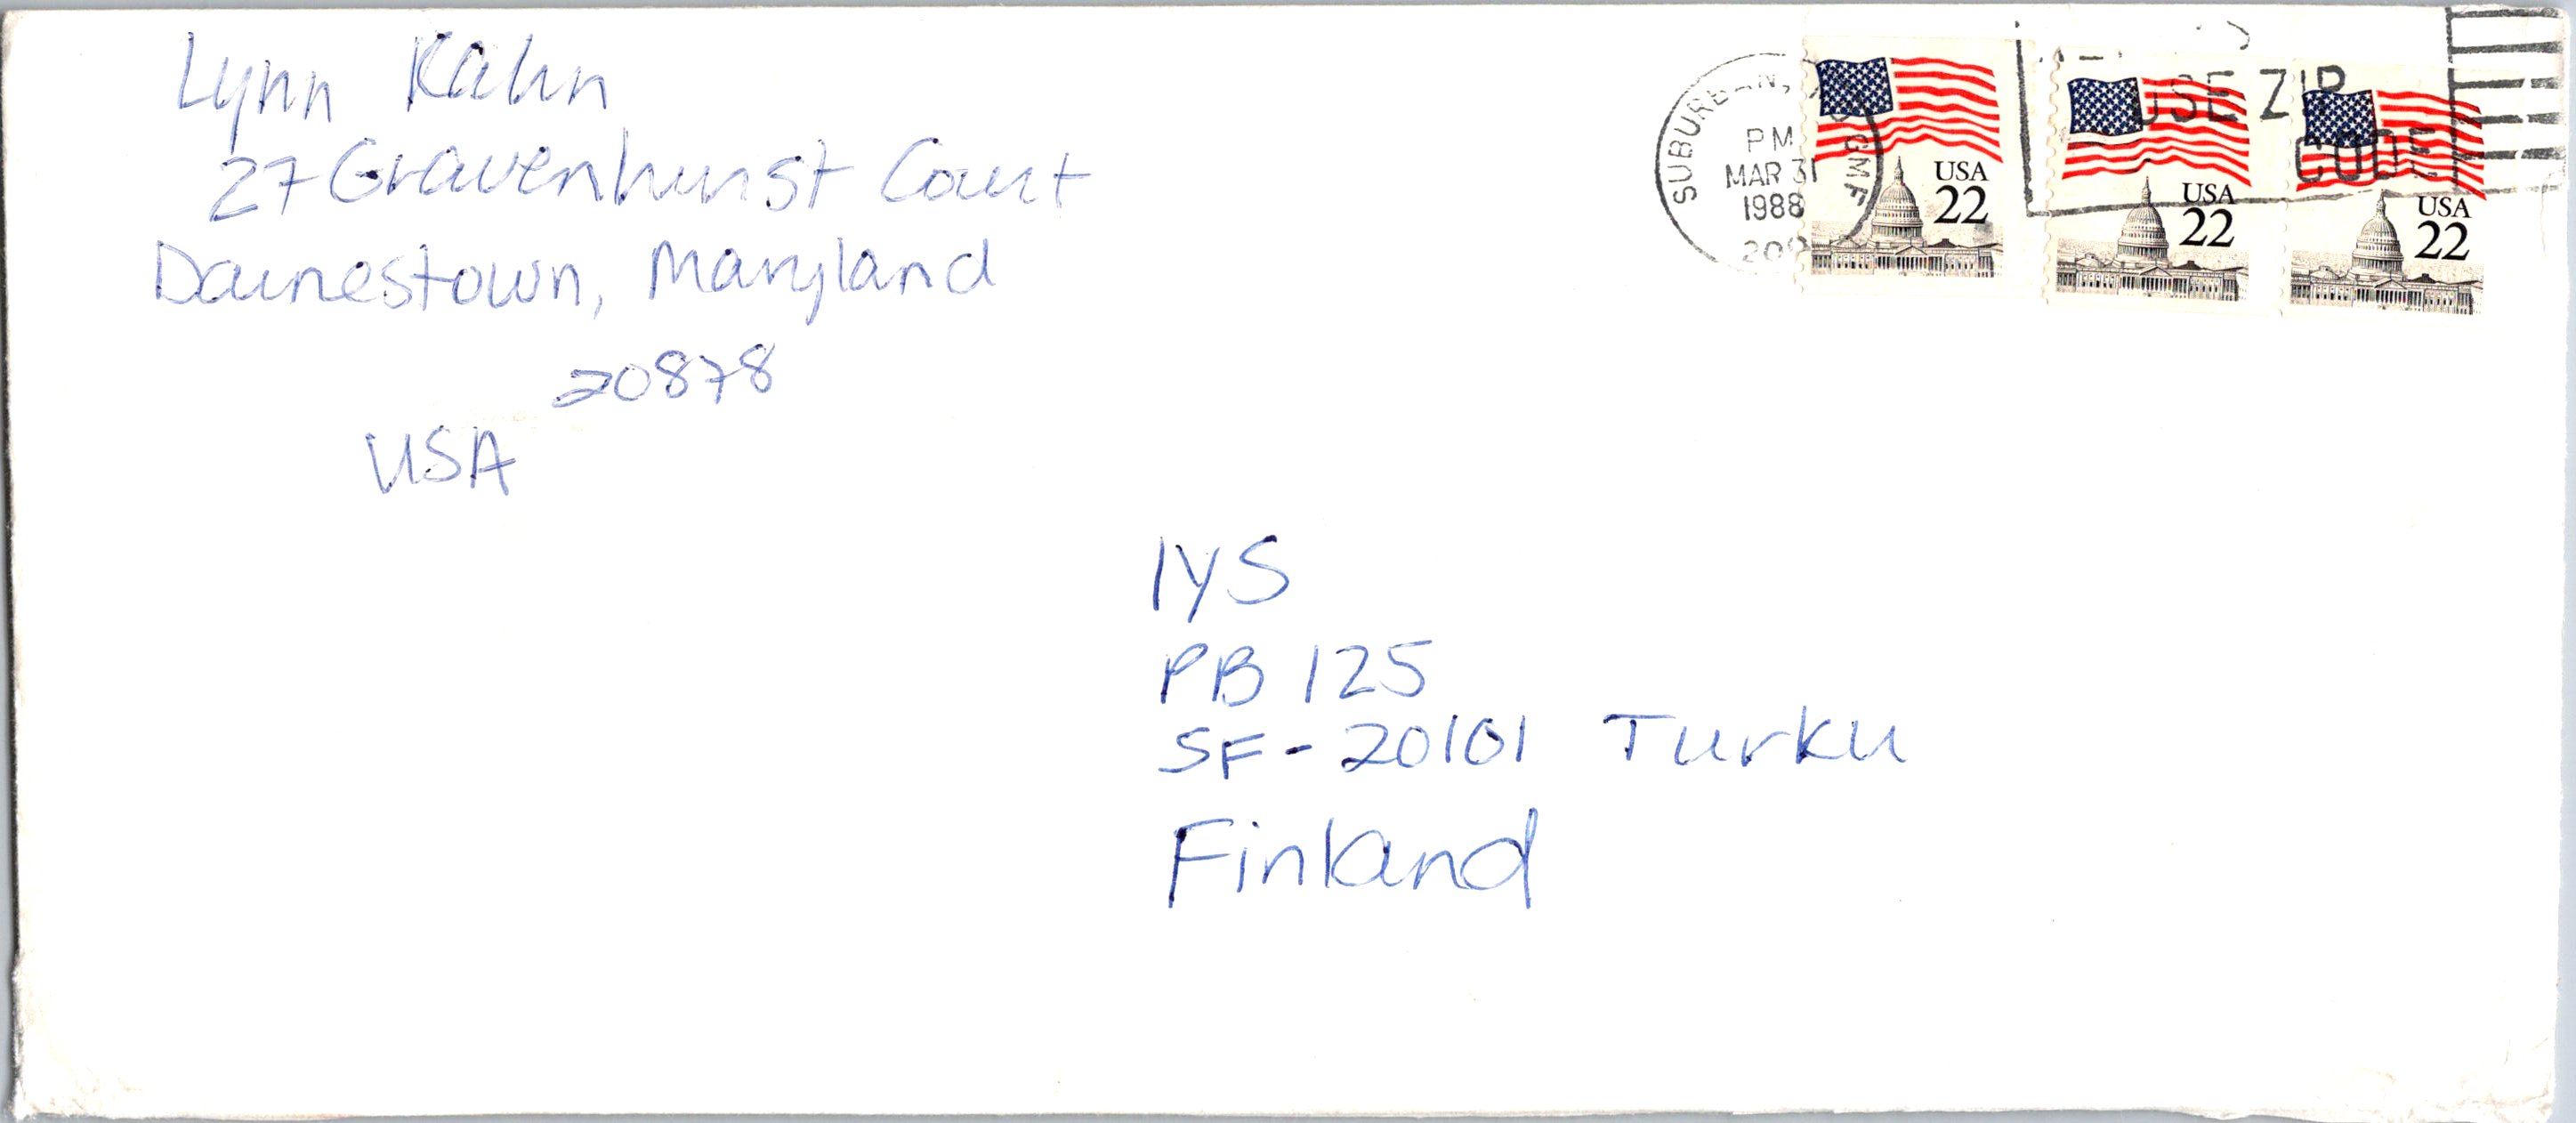 Lynn Kahn
27 Gravenhurst Court
Darnestown, Maryland
20878
USA
SUBURBAN, GMF
PM
MAR 31
1988
USE ZIP
CODE
USA
22
USA
22
USA
22
IYS
PB 125
SF-20101 Turku
Finland